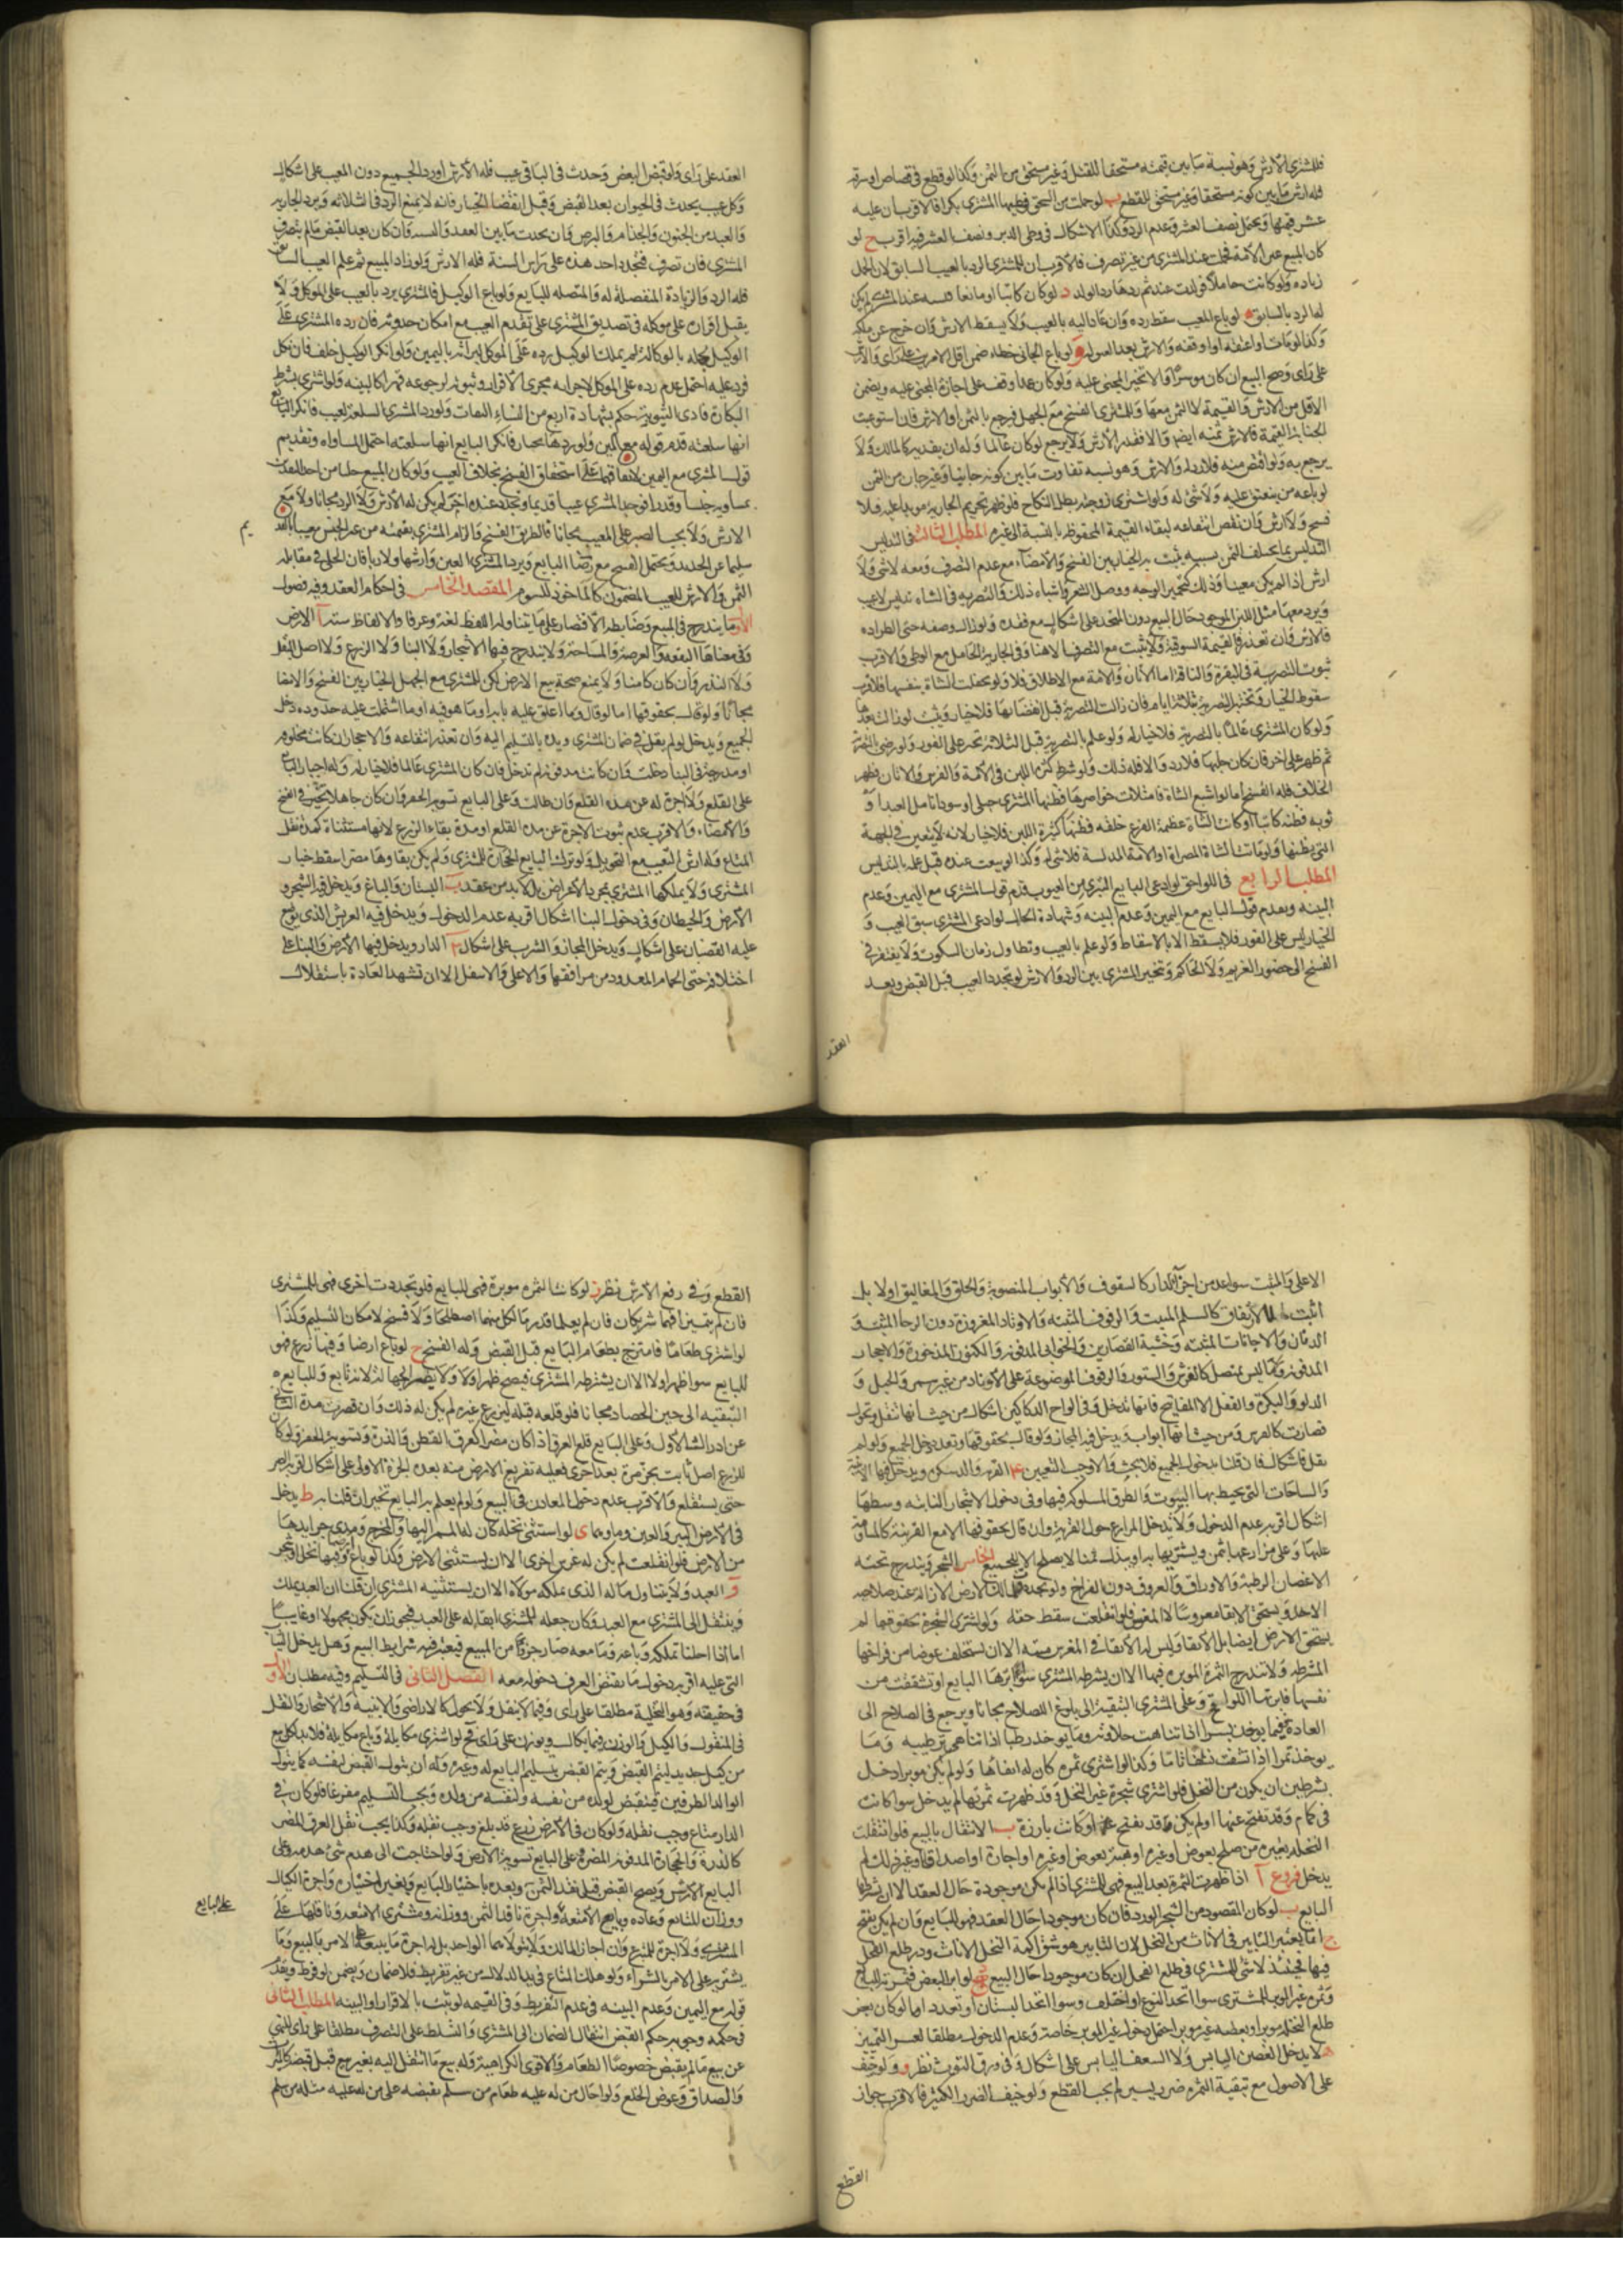 فللمشتري الارش وهو نسبة ما بين قيمته مستحقا للقتل وغير مستحق من الثمن وكذا لو قطع في قصاص او سرقة
فله ارش ما بين كونه مستحقا وغير مستحق للقطع ب لو حملت من السحق فوطيها المشتري بكرا فالاقرب ان عليه
عشر قيمتها ويحتمل نصف العشر وعدم الرد وكذا الاشكال في وطي الدبر ونصف العشر فيه اقرب ح لو
كان المبيع غير الامة فحملت عند المشتري من غير تصرف فالاقرب ان للمشتري الرد بالعيب السابق لان الحمل
زياده ولو كانت حاملا فولدت عنده ثم ردها رد الولد د لو كان كاتبا او صانعا فنسيه عند المشتري لم يكن
له الرد بالسابق ه لو باع المعيب سقط رده وان عاد اليه بالعيب ولا يسقط الارش وان خرج عن ملكه
وكذا لو مات او اعتقه او اوقفه والارش بعد العتق له و لو باع الجاني خطاء ضمن اقل الامرين على راى والارش
على راى وصح البيع ان كان موسرا والا تخير المجني عليه ولو كان عمدا وقف على اجازة المجني عليه ويضمن
الاقل من الارش والقيمة لا الثمن معها وللمشتري الفسخ مع الجهل فيرجع بالثمن او الارش فان استوعبت
الجناية القيمة فالارش ثمنه ايضا والا فقدر الارش ولا يرجع لو كان عالما وله ان يفديه كالمالك ولا
يرجع به ولو اقتص منه فلا رد وله الارش وهو نسبة تفاوت ما بين كونه جانيا وغير جان من الثمن
لو باعه من ينعتق عليه ولا شئ له ولو اشترى زوجته بطل النكاح فلو ظهر تحريم الجارية موبدا عليه فلا
فسخ ولا ارش وان نقص انتفاعه لبقاء القيمة المحفوظة بالنسبة الى غيره المطلب الثالث في التدليس
التدليس بما يختلف الثمن بسببه يثبت به الخيار بين الفسخ والامضاء مع عدم التصرف ومعه لا شئ ولا
ارش اذا لم يكن معيبا وذلك كتحمير الوجه ووصل الشعر واشباه ذلك والتصرية في الشاة تدليس لا عيب
ويرد معها مثل اللبن الموجود حال البيع دون المتجدد على اشكال مع فقده ولو زال وصفه حتى الطراوه
فالارش وان تعذر فالقيمة السوقية ولا يثبت مع التصرف الا هنا وفي الجارية الحامل مع الوطي والاقرب
ثبوت التصرية في البقرة والناقة اما الاتان والامة مع الاطلاق فلا ولو تحفلت الشاة بنفسها فالاقرب
سقوط الخيار وتختبر التصرية بثلثة ايام فان زالت التصرية قبل انقضائها فلا خيار ويثبت لو زالت بعدها
ولو كان المشتري عالما بالتصرية فلا خيار له ولو علم بالتصرية قبل الثلاثة تخير على الفور ولو رضى بالتصرية
ثم ظهر على اخر فان كان حلبها فلا رد والا فله ذلك ولو شرط كثرة اللبن في الامة والفرس والاتان فظهر
الخلاف فله الفسخ اما لو اشبع الشاة فامتلات خواصرها فظنها المشتري حبلى او سود انامل العبد او
ثوبه فظنه كاتبا او كانت الشاة عظيمة الضرع خلقة فظنها كثيرة اللبن فلا خيار لانه لا يتعين في الجهة
التي يظنها ولو ماتت الشاة المصراة او الامة المدلسة فلا شئ له وكذا لو تعيبت عنده قبل علمه بالتدليس
المطلب الرابع في اللواحق لو ادعى البايع التبري من العيوب قدم قول المشتري مع اليمين وعدم
البينه ويقدم قول البايع مع اليمين وعدم البينه وشهادة الحال لو ادعى المشتري سبق العيب و
الخيار ليس على الفور فلا يسقط الا بالاسقاط ولو علم بالعيب وتطاول زمان السكوت ولا يفتقر في
الفسخ الى حضور الغريم ولا الحاكم ويتخير المشتري بين الرد والارش لو تجدد العيب قبل القبض وبعد
العقد
العقد على راى ولو قبض البعض وحدث في الباقي عيب فله الارش او رد الجميع دون المعيب على اشكال
وكل عيب يحدث في الحيوان بعد القبض وقبل انقضاء الخيار فانه لا يمنع الرد في الثلاثه ويرد الجارية
والعبد من الجنون والجذام والبرص وان يحدث ما بين العقد والسنة فان كان بعد القبض ما لم يتصرف
المشتري فان تصرف فتجدد احد هذه على راس السنة فله الارش ولو زاد المبيع ثم علم العيب السابق
فله الرد والزيادة المنفصلة له والمتصله للبايع ولو باع الوكيل فالمشتري يرد بالعيب على الموكل ولا
يقبل اقرار على موكله في تصديق المشتري على تقدم العيب مع امكان حدوثه فان رده المشتري على
الوكيل لجهله بالوكالة لم يملك الوكيل رده على الموكل لبراته باليمين ولو انكر الوكيل حلف فان نكل
فرد عليه احتمل عدم رده على الموكل لاجرائه مجرى الاقرار وثبوته لرجوعه قهرا كالبينه ولو اشترى بشرط
البكارة فادعى الثيوبة حكم بشهادة اربع من النساء الثقات ولو رد المشتري السلعة بعيب فانكر البايع
انها سلعته قدم قوله مع اليمين ولو ردها بخيار فانكر البايع انها سلعته احتمل المساواه وتقديم
قول المشتري مع اليمين لاتفاقهما على استحقاق الفسخ بخلاف العيب ولو كان المبيع حليا من احد النقدين
بمساويه جنسا وقدرا فوجد المشتري عيبا قديما وتجدد عنده اخر لم يكن له الارش ولا الرد مجانا ولا مع
الارش ولا يجب الصبر على المعيب مجانا فالطريق الفسخ والزام المشتري بقيمته من غير الجنس معيبا بالقديم
سليما عن الجديد ويحتمل الفسخ مع رضا البايع ويرد المشتري العين وارشها ولا ربا فان الحلي في مقابلة
الثمن والارش للعيب المضمون كالماخوذ للسوم المقصد الخامس في احكام العقد وفيه فصول
الاول ما يندرج في المبيع وضابطه الاقتصار على ما يتناوله اللفظ لغة وعرفا والالفاظ ستة آ الارض
وفي معناها البقعة والعرصة والساحة ولا يندرج فيها الاشجار ولا البنا ولا الزرع ولا اصل البقل
ولا البذر وان كان كامنا ولا يمنع صحة بيع الارض لكن للمشتري مع الجهل الخيار بين الفسخ والامضا
مجانا ولو قال بحقوقها اما لو قال وما اغلق عليه بابه او ما هو فيه او ما اشتملت عليه حدوده دخل
الجميع ويدخل لو لم يقل في ضمان المشتري ويده بالتسليم اليه وان تعذر انتفاعه والاحجار ان كانت مخلوقه
او مدرجة في البنا دخلت وان كانت مدفونة لم تدخل فان كان المشتري عالما فلا خيار له وله اجبار البايع
على القلع ولا اجرة له عن مدة القلع وان طالت وعلى البايع تسوية الحفر وان كان جاهلا تخير في الفسخ
والامضاء والاقرب عدم ثبوت الاجرة عن مدة القلع او مدة بقاء الزرع لانها مستثناة كمدة نقل
المتاع وله ارش التعيب مع التحويل ولو ترك البايع الحجارة للمشتري ولم يكن بقاوها مضرا سقط خيار
المشتري ولا يملكها المشتري بمجرد الاعراض بل لابد من عقد ب البستان والباغ ويدخل فيه الشجر و
الارض والحيطان وفي دخول البنا اشكال اقربه عدم الدخول ويدخل فيه العريش الذي يوضع
عليه القضبان على اشكال ويدخل المجاز والشرب على اشكال ح الدار ويدخل فيها الارض والبنا على
اختلافه حتى الحمام المعدود من مرافقها والاعلى والاسفل الا ان تشهد العادة باستقلال
الاعلى والمثبت سوا عد من اجزاء الدار كالسقوف والابواب المنصوبة والحلق والمغاليق او لا بل
اثبت للارتفاق كالسلم المثبت والرفوف المثبته والاوتاد المغروزة دون الرحا المثبته و
الدنان والاجانات المثبته وخشبة القصارين والخوابي المدفونة والكنوز المذخورة والاحجار
المدفونة وما ليس بمتصل كالفرش والستور والرفوف الموضوعة على الاوتاد من غير سمر والحبل و
الدلو والبكرة والقفل الا المفاتيح فانها تدخل وفي الواح الدكاكين اشكال من حيث انها تنقل وتحول
فصارت كالفرش ومن حيث انها ابواب ويدخل فيه المجاز ولو قال بحقوقها وتعدد دخل الجميع ولو لم
يقل فاشكال فان قلنا بدخول الجميع فلا بحث والا وجب التعيين ۴ القرية والدسكرة ويدخل فيها الابنية
والساحات التي يحيط بها البيوت والطرق المسلوكه فيها وفي دخول الاشجار النابتة وسطها
اشكال اقربه عدم الدخول ولا تدخل المزارع حول القرية وان قال بحقوقها الا مع القرينة كالمساومة
عليها وعلى مزارعها بثمن ويشتريها به او يبذل ثمنا لا يصلح الا للجميع الخامس الشجر ويندرج تحته
الاغصان الرطبة والاوراق والعروق دون الفراخ ولو تجددت فلمالك الارض الازالة عند صلاحية
الاخذ ويستحق الابقا مغروسا لا المغرس فلو انقلعت سقط حقه ولو اشترى النخلة بحقوقها لم
يستحق الارض ايضا بل الابقا وليس له الابقا في المغرس ميتة الا ان يستخلف عوضا من فراخها
المشترطة ولا تندرج الثمرة الموبرة فيها الا ان يشرطه المشتري سوا ابرها البايع او تشققت من
نفسها فابرتها اللواقح وعلى المشتري التبقية الى بلوغ الصلاح مجانا ويرجع في الصلاح الى
العادة فيما يوخذ بسرا اذا تناهت حلاوته وما يوخذ رطبا اذا تناهى ترطيبه وما
يوخذ تمرا اذا نشفت نشافا تاما وكذا لو اشترى ثمرة كان له ابقاؤها ولو لم يكن موبرا دخل
بشرطين ان يكون من النخل فلو اشترى شجرة غير النخل وقد ظهرت ثمرتها لم يدخل سوا كانت
في كمام وقد تفتح عنها او لم يكن قد تفتح او كانت بارزة ب الانتقال بالبيع فلو انتقلت
النخلة بغيره من صلح بعوض او غيره او هبة بعوض او غيره او اجارة او اصداق او غير ذلك لم
يدخل فروع آ اذا ظهرت الثمرة بعد البيع فهي للمشتري اذا لم يكن موجودة حال العقد الا ان يشرطها
البايع ب لو كان المقصود من الشجر الورد فان كان موجودا حال العقد فهو للبايع وان لم يكن يفتح
ج انما يعتبر التابير في الاناث من النخل لان التابير هو شق اكمة النخل الاناث وذر طلع الفحل
فيها فحينئذ لا شئ للمشتري في طلع الفحل ان كان موجودا حال البيع د لو ابر البعض فثمرته للبايع
وثمرة غير الموبر للمشتري سوا اتحد النوع او اختلف وسوا اتحد البستان او تعدد اما لو كان بعض
طلع النخلة موبرا وبعضه غير موبر احتمل دخول غير الموبر خاصة وعدم الدخول مطلقا لعسر التمييز
ه لا يدخل الغصن اليابس ولا السعف اليابس على اشكال وفي ورق التوت نظر و ولو خيف
على الاصول مع تبقية الثمرة ضرر يسير لم يجب القطع ولو خيف الضرر الكثير فالاقرب جواز
القطع
القطع وفي رفع الارش نظر ز لو كانت الثمرة موبرة فهي للبايع فلو تجددت اخرى فهي للمشتري
فان لم يتميزا فهما شريكان فان لم يعلما قدر ما لكل منهما اصطلحا ولا فسخ لامكان التسليم وكذا
لو اشترى طعاما فامتزج بطعام البايع قبل القبض وله الفسخ ح لو باع ارضا وفيها زرع فهو
للبايع سوا ظهر او لا الا ان يشترطه المشتري فيصح ظهر او لا ولا يضر الجهالة لانه تابع وللبايع
التبقيه الى حين الحصاد مجانا فلو قلعه قبله ليزرع غيره لم يكن له ذلك وان قصرت مدة الثاني
عن ادراك الاول وعلى البايع قلع العرق اذا كان مضرا كعرق القطن والذرة وتسوية الحفر ولو كان
للزرع اصل ثابت يجز مرة بعد اخرى فعليه تفريغ الارض منه بعد الجزة الاولى على اشكال اقربه الصبر
حتى يستقلع والاقرب عدم دخول المعادن في البيع ولو لم يعلم بها البايع تخير ان قلنا به ط يدخل
في الارض البير والعين وماوهما ى لو استثنى نخلة كان له الممر اليها والمخرج ومدى جرايدها
من الارض فلو انقلعت لم يكن له غرس اخرى الا ان يستثني الارض وكذا لو باع ارضا وفيها نخل او شجر
و العبد ولا يتناول ماله الذي يملكه مولاه الا ان يستثنيه المشتري ان قلنا ان العبد يملك
وينتقل الى المشتري مع العبد وكان جعله للمشتري ابقاء له على العبد فيجوز ان يكون مجهولا او غايبا
اما اذا احلنا تملكه وباعه وما معه صار جزءا من المبيع فيعتبر فيه شرايط البيع وهل يدخل الثياب
التي عليه اقربه دخول ما يقتضي العرف دخوله معه الفصل الثاني في التسليم وفيه مطلبان الاول
في حقيقته وهو التخلية مطلقا على راى وفيما لا ينقل ولا يحول كالاراضي والابنية والاشجار والنقل
في المنقول والكيل والوزن فيما يكال ويوزن على راى فح لو اشترى مكايلة وباع مكايلة فلا بد لكل بيع
من كيل جديد ليتم القبض ويتم القبض بتسليم البايع له وغيره وله ان يتولى القبض لنفسه كما يتولى
الوالد الطرفين فيقبض لولده من نفسه ولنفسه من ولده ويجب التسليم مفرغا فلو كان في
الدار متاع وجب نقله ولو كان في الارض زرع قد بلغ وجب نقله وكذا يجب نقل العرق المضر
كالذرة والحجارة المدفونة المضرة وعلى البايع تسوية الارض ولو احتاجت الى هدم شئ هدم وعلى
البايع الارش ويصح القبض قبل نقد الثمن وبعده باختيار البايع وبغير اختياره واجرة الكيال
ووزان المتاع وعاده وبايع الامتعة واجرة ناقد الثمن ووزانه ومشتري الامتعة وناقلها على
على البايع
المشتري ولا اجرة للمتبرع وان اجاز المالك ولا يتولاهما الواحد بل له اجرة ما يبيعه على الامر بالبيع وما
يشتريه على الامر بالشراء ولو هلك المتاع في يد الدلال من غير تفريط فلا ضمان ويضمن لو فرط ويقدم
قوله مع اليمين وعدم البينه في عدم التفريط وفي القيمة لو ثبت بالاقرار او البينه المطلب الثاني
في حكمه وجوبه حكم القبض انتقال الضمان الى المشتري والتسلط على التصرف مطلقا على راى للنهي
عن بيع ما لم يقبض خصوصا الطعام والاقوى الكراهية وله بيع ما انتقل اليه بغير بيع قبل قبضه كالميراث
والصداق وعوض الخلع ولو احال من له عليه طعام من سلم بقبضه على من له عليه مثله من سلم